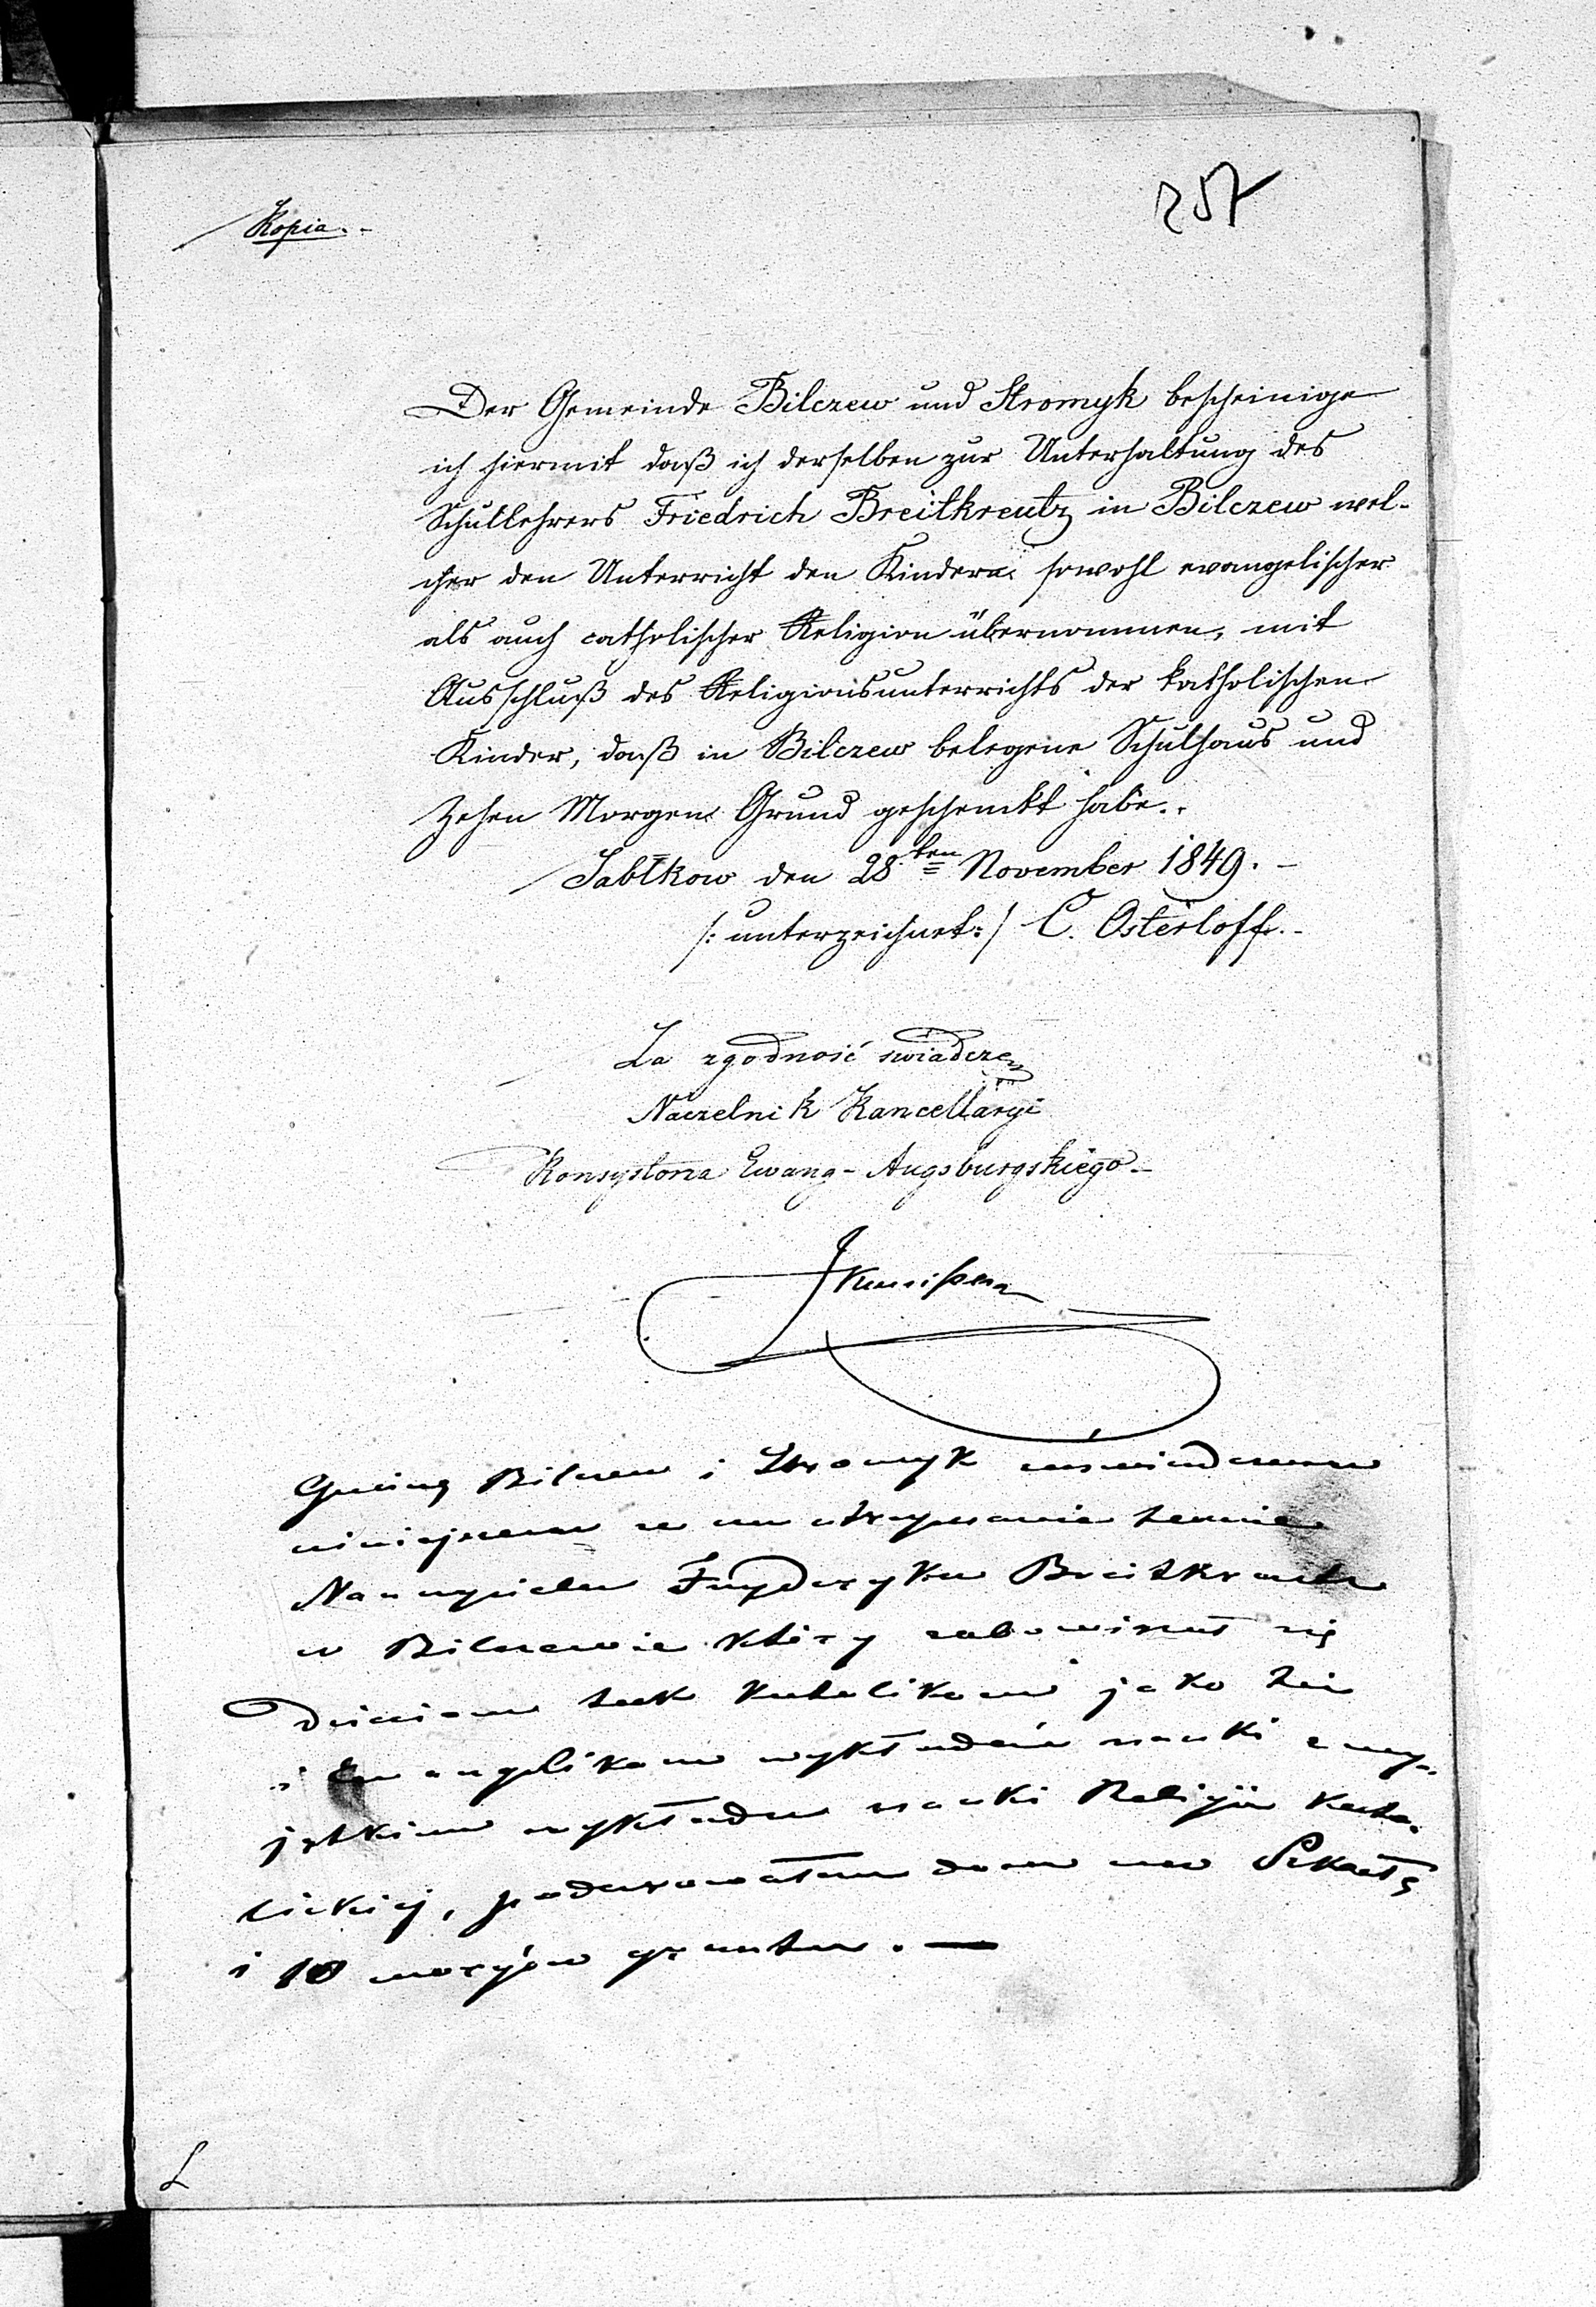 257
Kopia.-
Der Gemeinde Bilczew und Stromyk bescheinige
ich hiermit daß ich derselben zur Unterhaltung des
Schullehrers Friedrich Breitkreutz in Bilczew wel-
cher den Unterricht den Kindern sowohl evangelischer
als auch catholischer Religion übernommen, mit
Ausschluß des Religionsunterrichts der katholischen
Kinder, daß in Bilczew belegene Schulhaus und
Zehen Morgen Grund geschenkt habe.
Jabłkow den 28ten November 1849.-
/: unterzeichnet :/ C. Osterloff.-
Za zgodność świadczę
Naczelnik Kancellaryi
Konsystorza Ewang-Augsburgskiego.-
Gminy Bilczew i Stromyk
niniejszem w utrzymanie
Nauczyciela Fryderyka Breitkreutz
w Bilczewie który zobowiązał się
dzieciom tak katolikom jako też
i Ewangelikom wykładać nauki z wy-
jątkiem wykładu nauki Religii kato-
lickiej, podarowałem dom na Szkołę
i 10 morgów gruntu. —